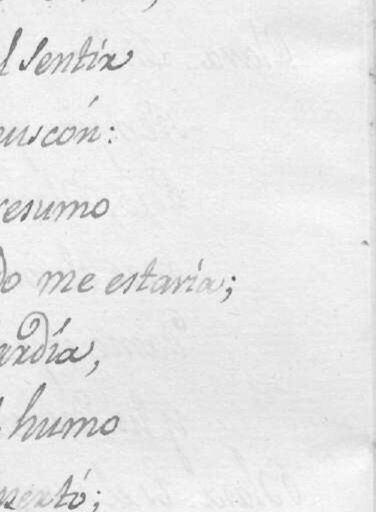 l sentir
uscón:
resumo
do me estaria;
ardía,
l humo
pertó;